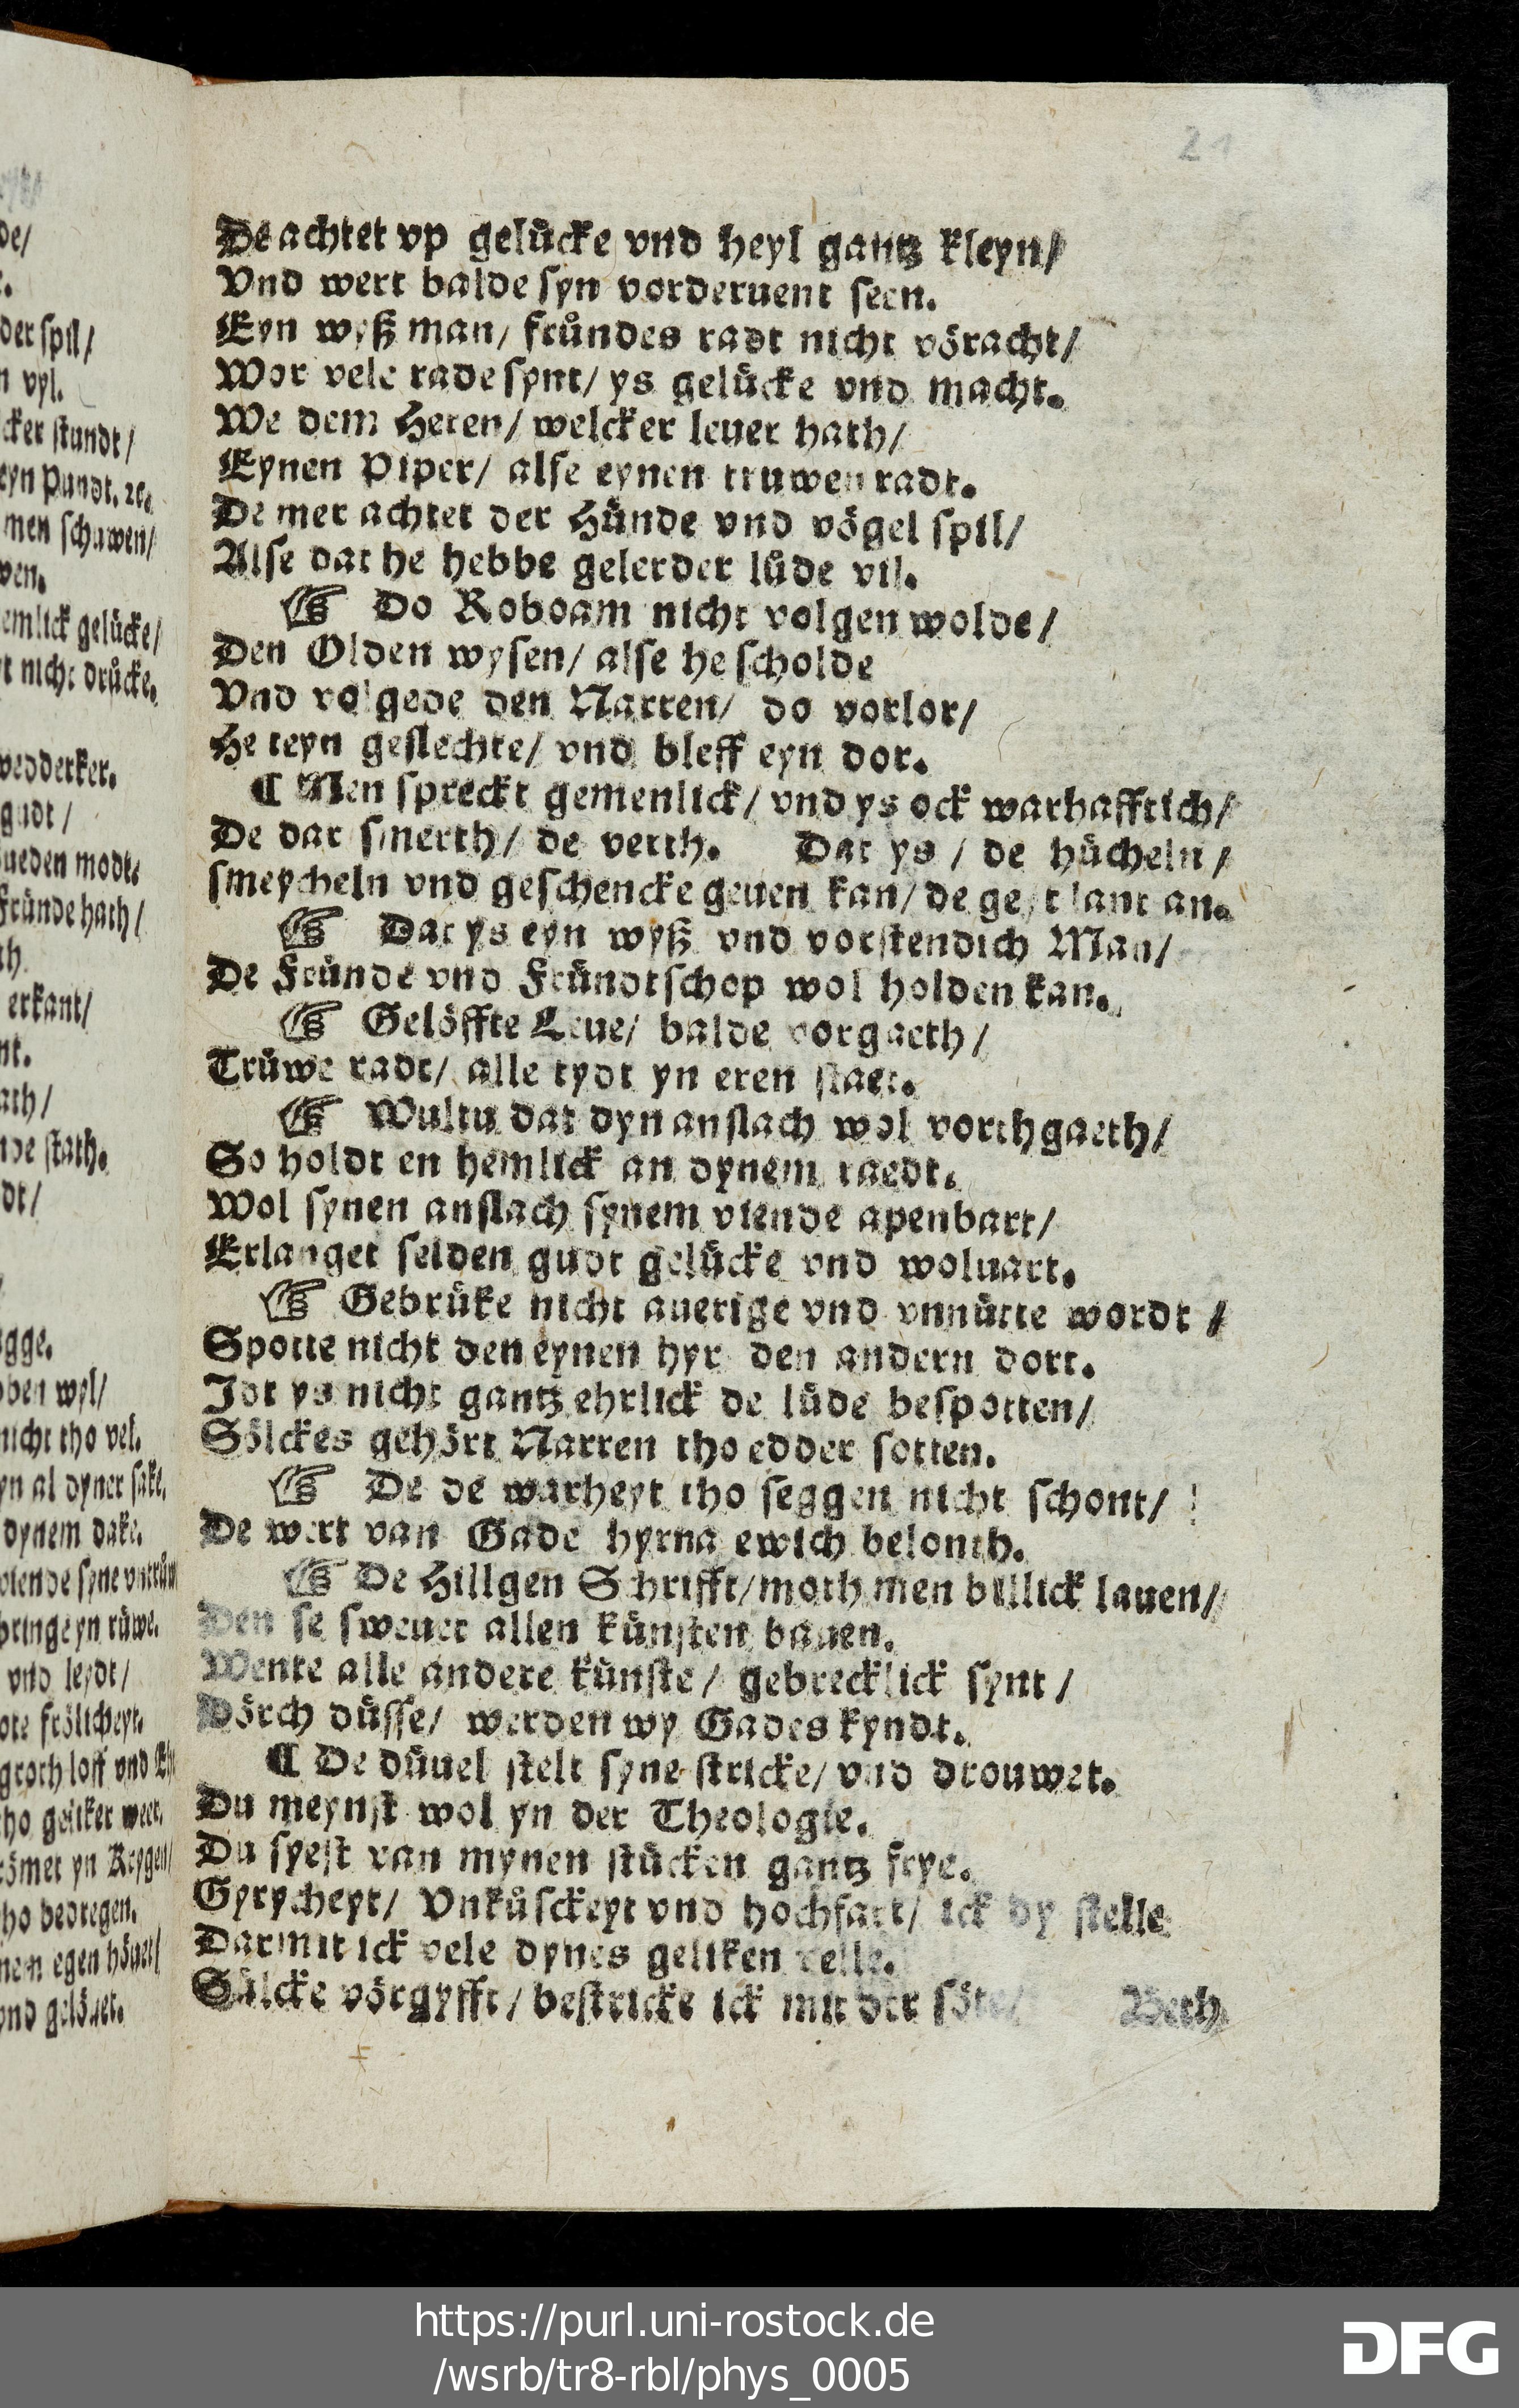 21
De achtet vp gelücke vnd heyl gantz kleyn/
Vnd wert balde syn vorderuent seen.
Eyn wyß man/ fründes radt nicht vöracht/
Wor vele rade synt/ ys gelücke vnd macht.
We dem Heren/ welcker leuer hath/
Eynen Piper/ alse eynen truwen radt.
De mer achtet der Hünde vnd vögel spil/
Alse dat he hebbe gelerder lüde vil.
☞ Do Roboam nicht volgen wolde/
Den Olden wysen/ alse he scholde
Vnd volgede den Narren/ do vorlor/
He teyn geslechte/ vnd bleff eyn dor.
¶ Men spreckt gemenlick/ vnd ys ock warhafftich/
De dar smerth/ de verth. Dat ys / de hücheln/
smeycheln vnd geschencke geuen kan/ de geyt lant an.
☞ Dat ys eyn wyß vnd vorstendich Man/
De Fründe vnd Fründtschop wol holden kan.
☞ Gelöffte Leue/ balde vorgaeth/
Trüwe radt/ alle tydt yn eren staet.
☞ Wultu dat dyn anslach wol vorthgaeth/
So holdt en hemlick an dynem raedt.
Wol synen anslach synem viende apenbart/
Erlanget selden gudt gelücke vnd woluart.
☞ Gebrüke nicht auerige vnd vnnütte wordt /
Spotte nicht den eynen hyr den andern dort.
Idt ys nicht gantz ehrlick de lüde bespotten/
Sölckes gehört Narren tho edder sotten.
☞ De de warheyt tho seggen nicht schont/
De wert van Gade hyrna ewich belonth.
☞ De Hillgen Schrifft/ moth men billick lauen/
Den se sweuet allen künsten bauen.
Wente alle andere künste/ gebrecklick synt/
Dörch düsse/ werden wy Gades kyndt.
¶ De düuel stelt syne stricke/ vnd drouwet.
Du meynst wol yn der Theologie.
Du syest van mynen stücken gantz frye.
Gyrycheyt/ Vnküsckeyt vnd hochfart/ ick dy stelle
Darmit ick vele dynes geliken velle.
Sülcke vörgyfft/ bestricke ick mit der söte/ Weth
https://purl.uni-rostock.de
/wsrb/tr8-rbl/phys_0005
DFG